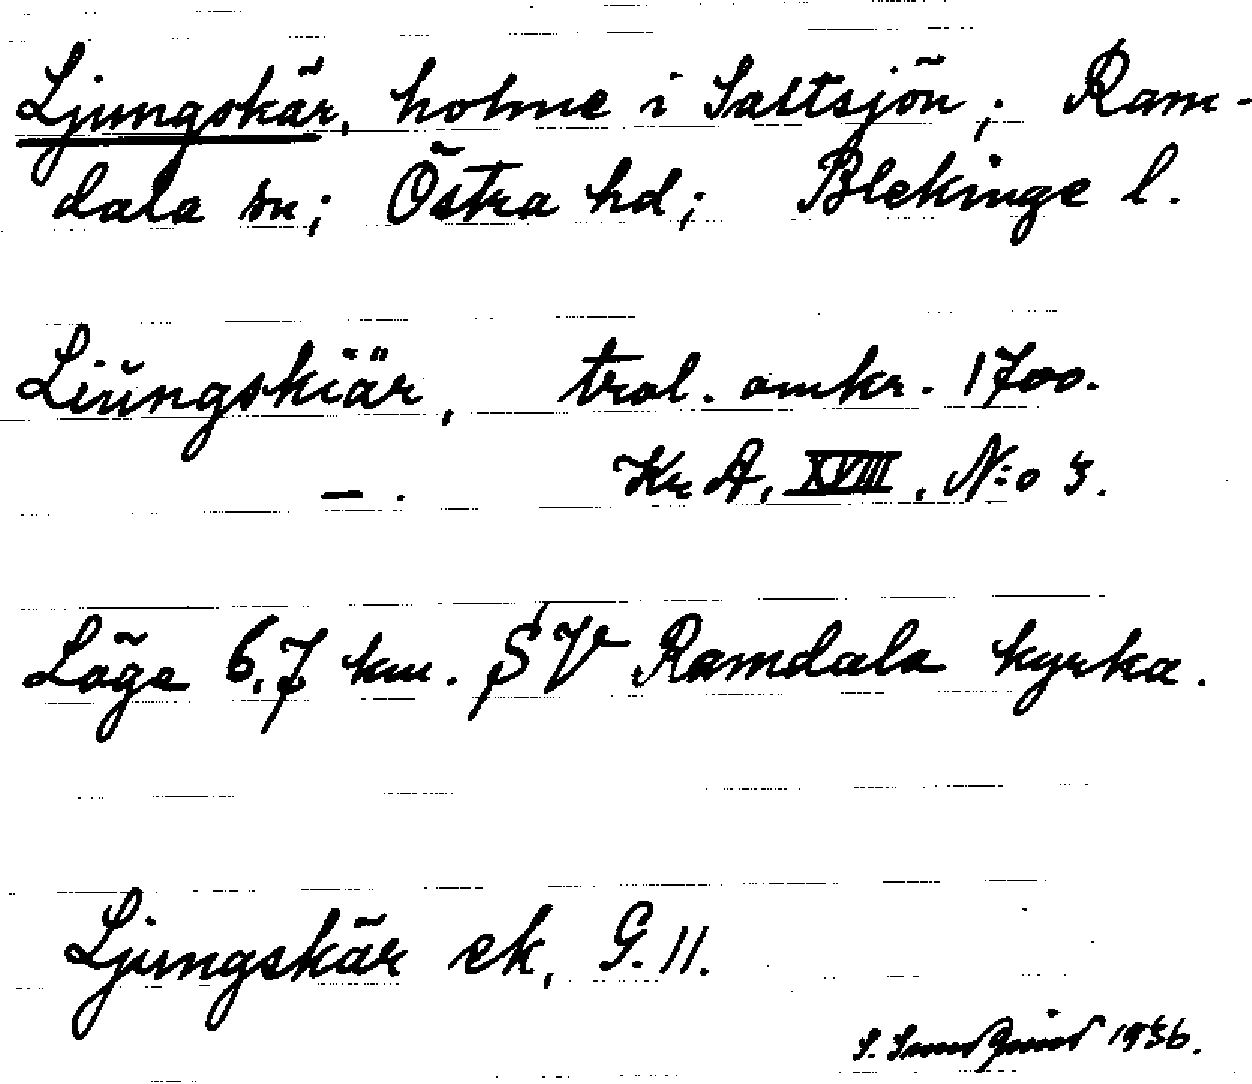 Ljungskär, holme i Saltsjön; Ram-
dala sn; Östra hd; Blekinge l.
Liŭngskiär, trol. omkr. 1700.
—. KrA, XVIII, N:o 3.
Läge 6,7 km. SV Ramdala kyrka.
Ljungskär ek, G. 11.
S. 1936.